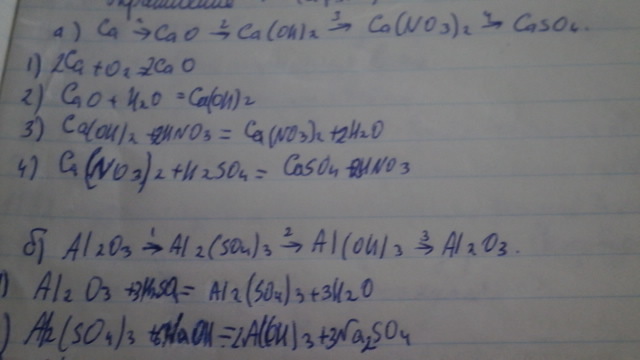 а) Ca 1→ CaO 2→ Ca(OH)2 3→ Ca(NO3)2 4→ CaSO4.
1) 2Ca + O2 = 2CaO
2) CaO + H2O = Ca(OH)2
3) Ca(OH)2 + 2HNO3 = Ca(NO3)2 + 2H2O
4) Ca(NO3)2 + H2SO4 = CaSO4 + 2HNO3
б) Al2O3 1→ Al2(SO4)3 2→ Al(OH)3 3→ Al2O3.
) Al2O3 + 3H2SO4 = Al2(SO4)3 + 3H2O
) Al2(SO4)3 + 6NaOH = 2Al(OH)3 + 3Na2SO4